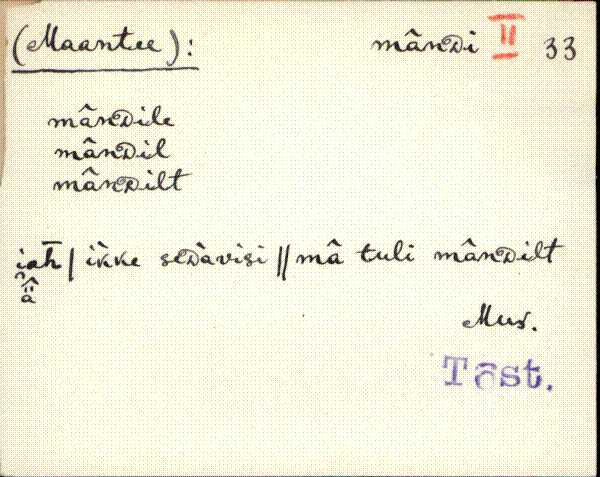 (Maantee): mânᴅi II 33
mânᴅile
mânᴅil
mânᴅilt
i̯ah | ikke seᴅàvisi || mâ tuli mânᴅilt
ä̂
Mus.
Tõst.